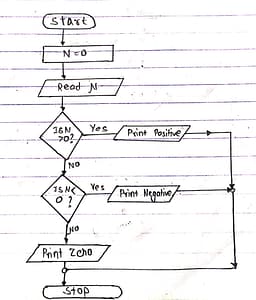 Start
N=0
Read N
IS N
>0?
Yes
Print Positive
NO
IS N<
0 ?
Yes
Print Negative
NO
Print Zero
Stop